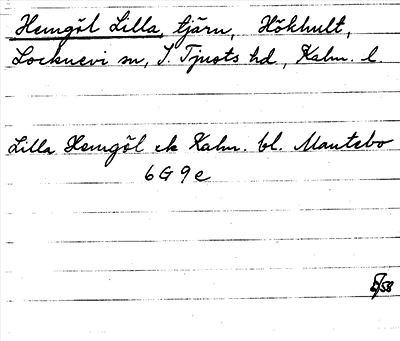 Hemgöl Lilla, tjärn, Hökhult,
Locknevi sn, S. Tjusts hd, Kalm. l.
Lilla Hemgöl ek Kalm. bl. Mantebo
6G9e